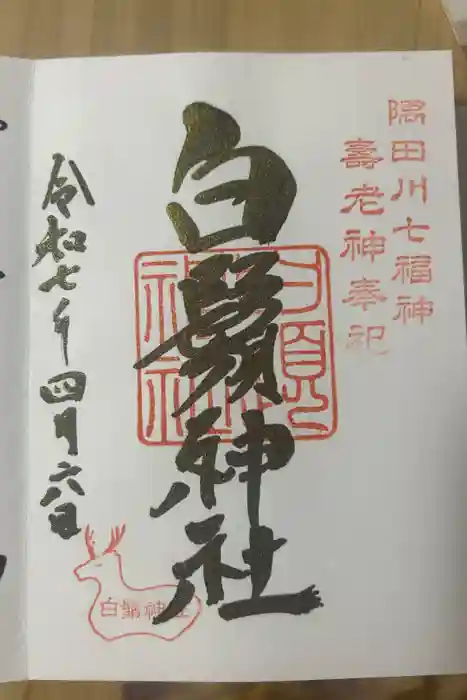 隅田川七福神
壽老神奉祀
白鬚神社
白鬚神社
令和七年四月六日
白鬚神社